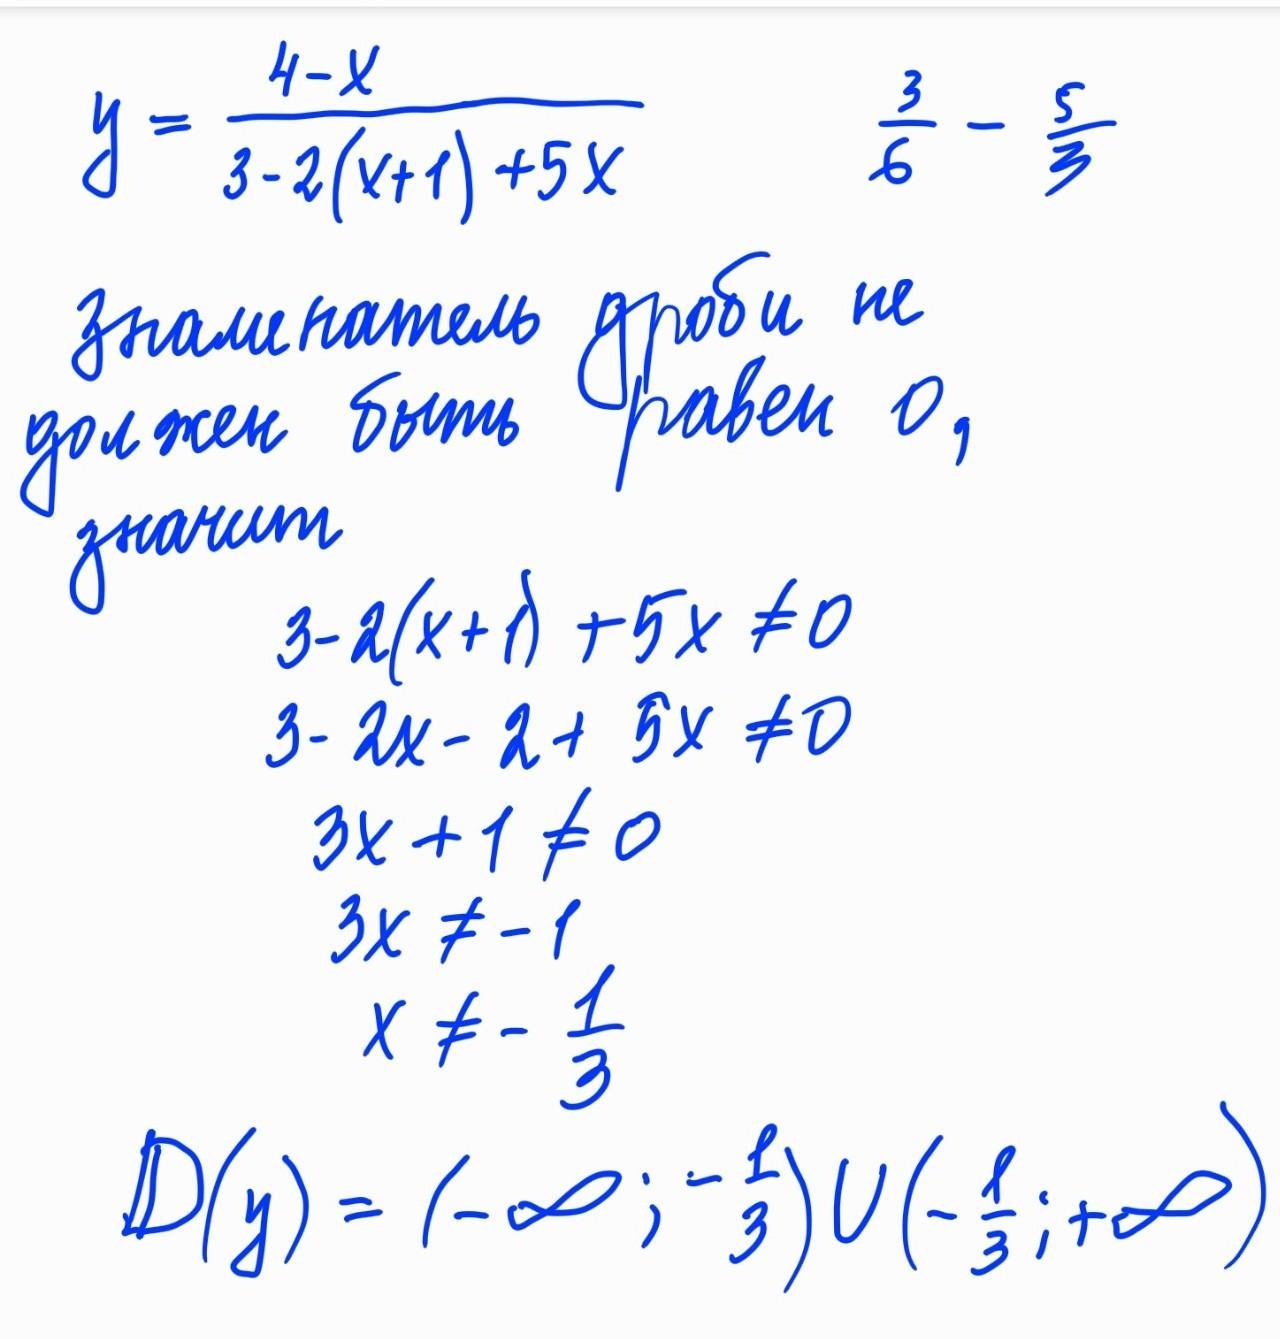 y = (4-x)/(3-2(x+1)+5x)
3/6 - 5/3
Знаменатель дроби не
должен быть равен 0,
значит
3-2(x+1)+5x ≠ 0
3-2x-2+5x ≠ 0
3x+1 ≠ 0
3x ≠ -1
x ≠ -1/3
D(y) = (-∞; -1/3) ∪ (-1/3; +∞)